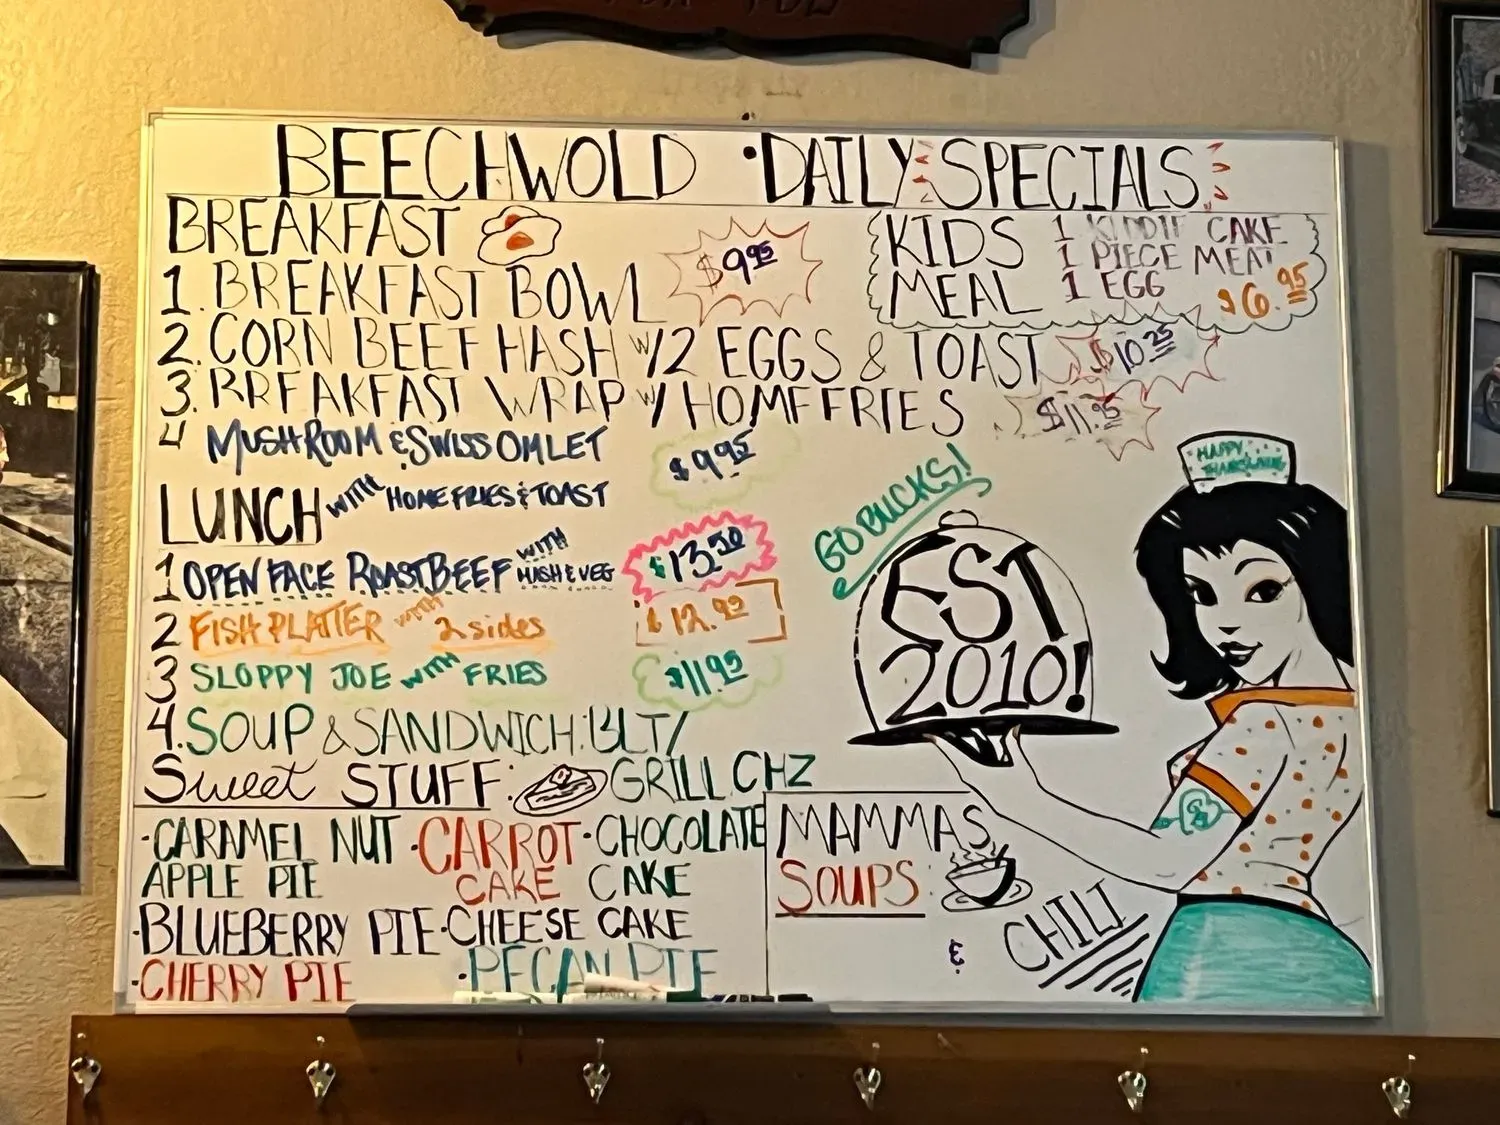 BEECHWOLD • DAILY SPECIALS
BREAKFAST
1. BREAKFAST BOWL $9.95
2. CORN BEEF HASH W/2 EGGS & TOAST $10.25
3. BREAKFAST WRAP W/ HOMEFRIES $11.95
4 MUSHROOM & SWISS OMLET $9.95
WITH HOMEFRIES & TOAST
KIDS MEAL
1 KIDDIE CAKE
1 PIECE MEAT
1 EGG $6.95
LUNCH
1 OPEN FACE ROAST BEEF WITH MASH & VEG $13.50
2 FISH PLATTER WITH 2 sides
3 SLOPPY JOE WITH FRIES $11.95
4. SOUP & SANDWICH: BLT/
GRILL CHZ
Sweet STUFF:
•CARAMEL NUT APPLE PIE
•CARROT CAKE
•CHOCOLATE CAKE
•BLUEBERRY PIE
•CHEESE CAKE
•CHERRY PIE
•PECAN PIE
MAMMAS
SOUPS:
& CHILI
GO BUCKS!
EST
2010!
HAPPY
THANKSGIVING